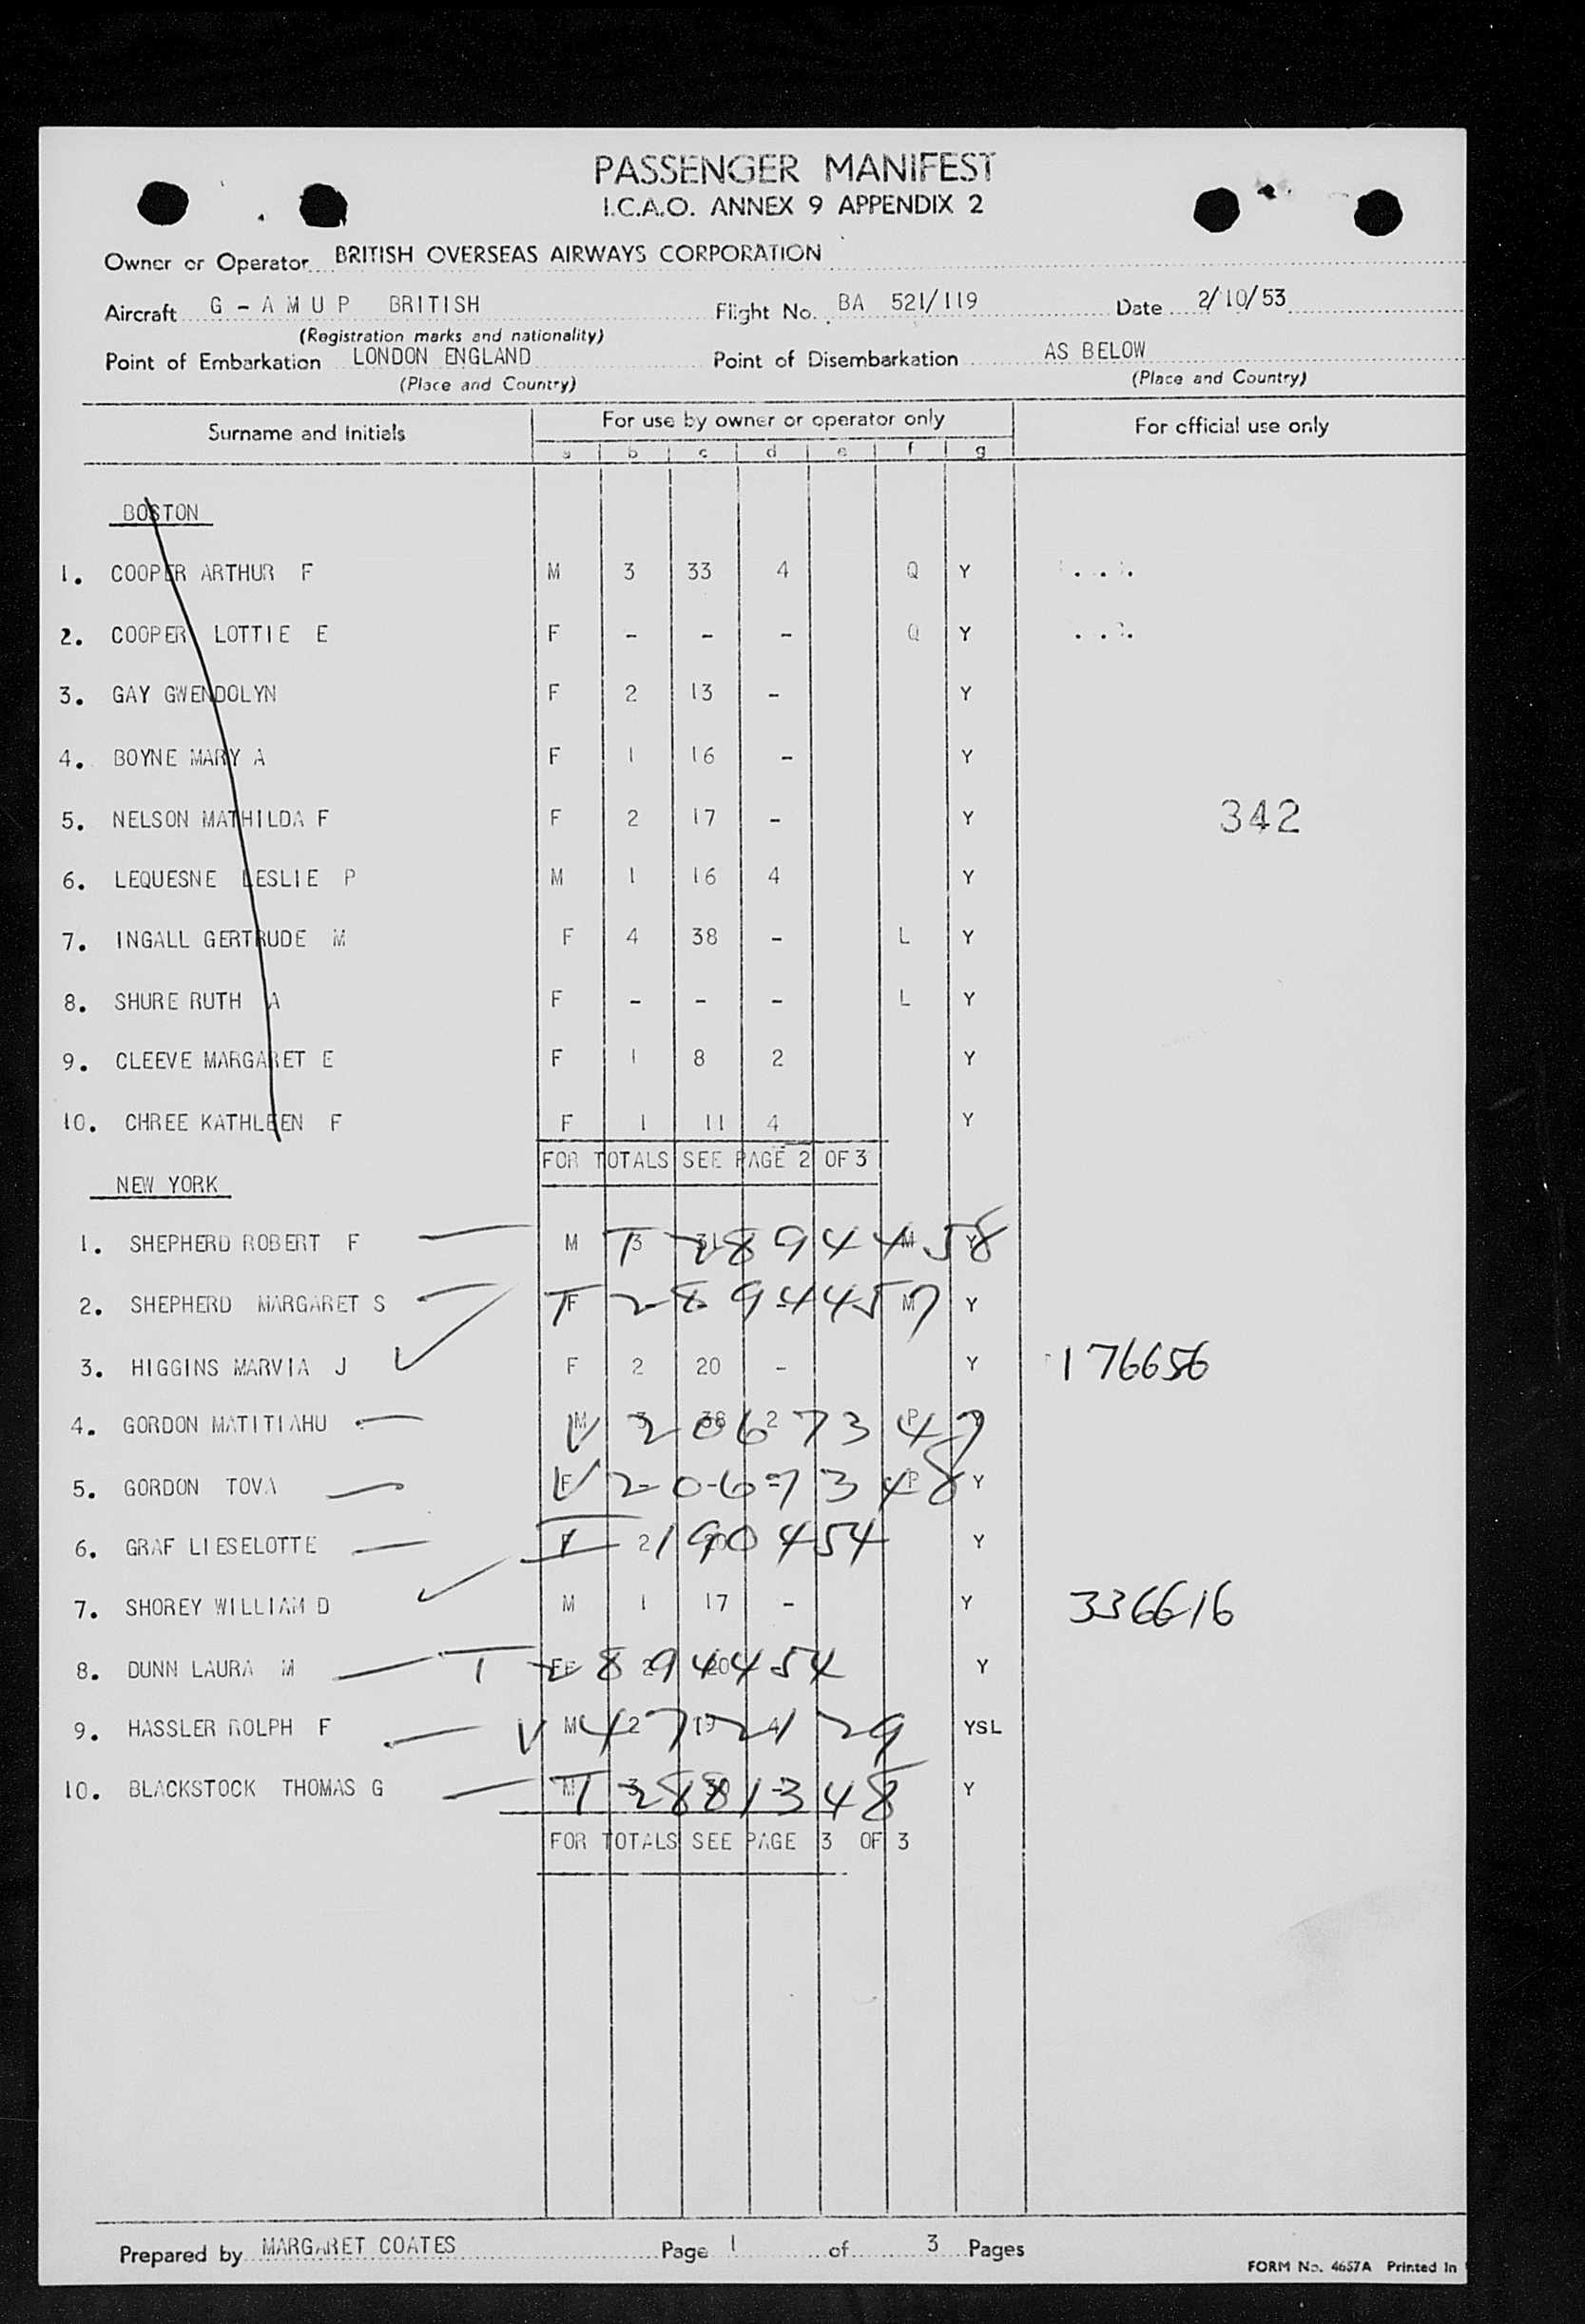 PASSENGER MANIFEST
I.C.A.O. ANNEX 9 APPENDIX 2
Owner or Operator BRITISH OVERSEAS AIRWAYS CORPORATION
Aircraft G - A M U P BRITISH Flight No. BA 521/119 Date 2/10/53
(Registration marks and nationality)
Point of Embarkation LONDON ENGLAND Point of Disembarkation AS BELOW
(Place and Country) (Place and Country)
Surname and Initials For use by owner or operator only For official use only
a b c d e f g
BOSTON
1. COOPER ARTHUR F M 3 33 4 Q Y
2. COOPER LOTTIE E F - - - Q Y
3. GAY GWENDOLYN F 2 13 - Y
4. BOYNE MARY A F 1 16 - Y
5. NELSON MATHILDA F F 2 17 - Y 342
6. LEQUESNE LESLIE P M 1 16 4 Y
7. INGALL GERTRUDE M F 4 38 - L Y
8. SHURE RUTH A F - - - L Y
9. CLEEVE MARGARET E F 1 8 2 Y
10. CHREE KATHLEEN F F 1 11 4 Y
FOR TOTALS SEE PAGE 2 OF 3
NEW YORK
1. SHEPHERD ROBERT F M 3 M Y T 2894458
2. SHEPHERD MARGARET S F M Y T 2894457
3. HIGGINS MARVIA J F 2 20 - Y 176656
4. GORDON MATITIAHU M 3 38 2 P V 2067347
5. GORDON TOVA F - - - P Y V 2067348
6. GRAF LIESELOTTE F 2 Y T 190454
7. SHOREY WILLIAM D M 1 17 - Y 336616
8. DUNN LAURA M F 2 20 Y T 2894454
9. HASSLER ROLPH F M 2 19 4 YSL V 472129
10. BLACKSTOCK THOMAS G M Y T 2881348
FOR TOTALS SEE PAGE 3 OF 3
Prepared by MARGARET COATES Page 1 of 3 Pages
FORM No. 4657A Printed In